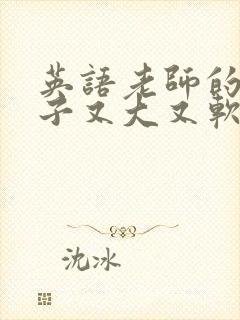 英語老師的
子又大又軟
沈冰